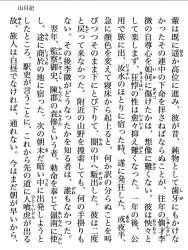 山月記
輩は既に遥か高位に進み、彼が昔、鈍物として歯牙にもかけな
かったその連中の下命を拝さねばならぬことが、往年の儁才李
徴の自尊心を如何に傷けたかは、想像に難くない。彼は怏々と
して楽しまず、狂悖の性は愈々抑え難くなった。一年の後、公
用で旅に出、汝水のほとりに宿った時、遂に発狂した。或夜半、
急に顔色を変えて寝床から起上ると、何か訳の分らぬことを叫
びつつそのまま下にとび下りて、闇の中へ駈出した。彼は二度
と戻って来なかった。附近の山野を捜索しても、何の手掛りも
ない。その後李徴がどうなったかを知る者は、誰もなかった。
翌年、監察御史、陳郡の袁傪という者、勅命を奉じて嶺南に使
し、途に商於の地に宿った。次の朝未だ暗い中に出発しようと
したところ、駅吏が言うことに、これから先の道に人喰虎が出る
故、旅人は白昼でなければ、通れない。今はまだ朝が早いから、